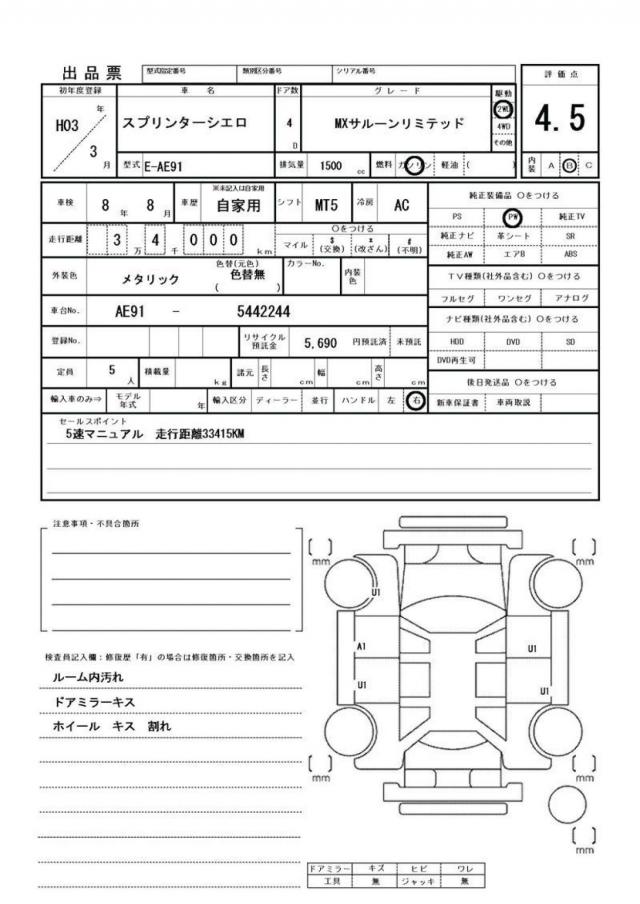 出品票 型式指定番号 類別区分番号 シリアル番号
評価点
4.5
初年度登録 車名 ドア数 グレード 駆動
H03 年 3 月 スプリンターシエロ 4 D MXサルーンリミテッド 2WD
4WD
その他
型式 E-AE91 排気量 1500 cc 燃料 ガソリン 軽油 ( )
内装 A B C
車検 8 年 8 月 車歴 ※未記入は自家用 自家用 シフト MT5 冷房 AC
走行距離 3 万 4 千 000 km
○をつける
マイル $(交換) *(改ざん) #(不明)
外装色 メタリック 色替(元色) 色替無 ( ) カラーNo. 内装色
車台No. AE91 - 5442244
登録No. リサイクル預託金 5,690 円預託済 未預託
定員 5 人 積載量 kg 諸元 長さ cm 幅 cm 高さ cm
輸入車のみ⇒ モデル年式 年 輸入区分 ディーラー 並行 ハンドル 左 右
純正装備品 ○をつける
PS PW 純正TV
純正ナビ 革シート SR
純正AW エアB ABS
TV種類(社外品含む) ○をつける
フルセグ ワンセグ アナログ
ナビ種類(社外品含む) ○をつける
HDD DVD SD
DVD再生可
後日発送品 ○をつける
新車保証書 車両取説
セールスポイント
5速マニュアル 走行距離33415KM
注意事項・不具合箇所
検査員記入欄:修復歴「有」の場合は修復箇所・交換箇所を記入
ルーム内汚れ
ドアミラーキス
ホイール キス 割れ
[ ] mm
[ ] mm
U1
A1
U1
U1
U1
[ ] mm
[ ] mm
[ ] mm
ドアミラー キズ ヒビ ワレ
工具 無 ジャッキ 無